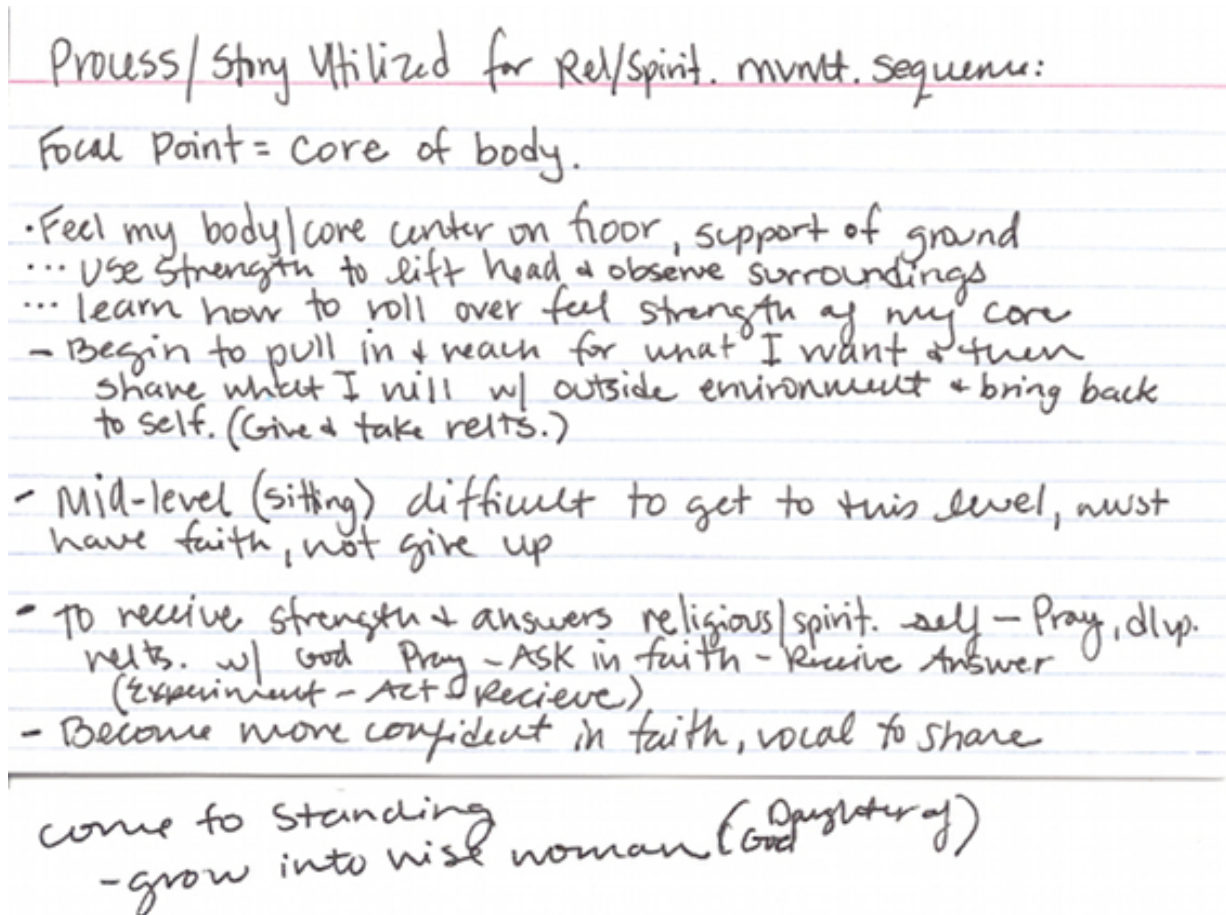 Process/Story Utilized for Rel/Spirit. mvmt. sequence:
Focal Point = core of body.
· Feel my body/core center on floor, support of ground
... Use strength to lift head & observe surroundings
... learn how to roll over feel strength of my core
- Begin to pull in & reach for what I want & then
share what I will w/ outside environment & bring back
to self. (Give & take relts.)
- Mid-level (sitting) difficult to get to this level, must
have faith, not give up
- To receive strength & answers religious/spirit. self - Pray, dlvp.
relts. w/ God Pray - ASK in faith - Receive Answer
(Experiment - Act - Recieve)
- Become more confident in faith, vocal to share
come to standing
- grow into wise woman (Daughter of God)